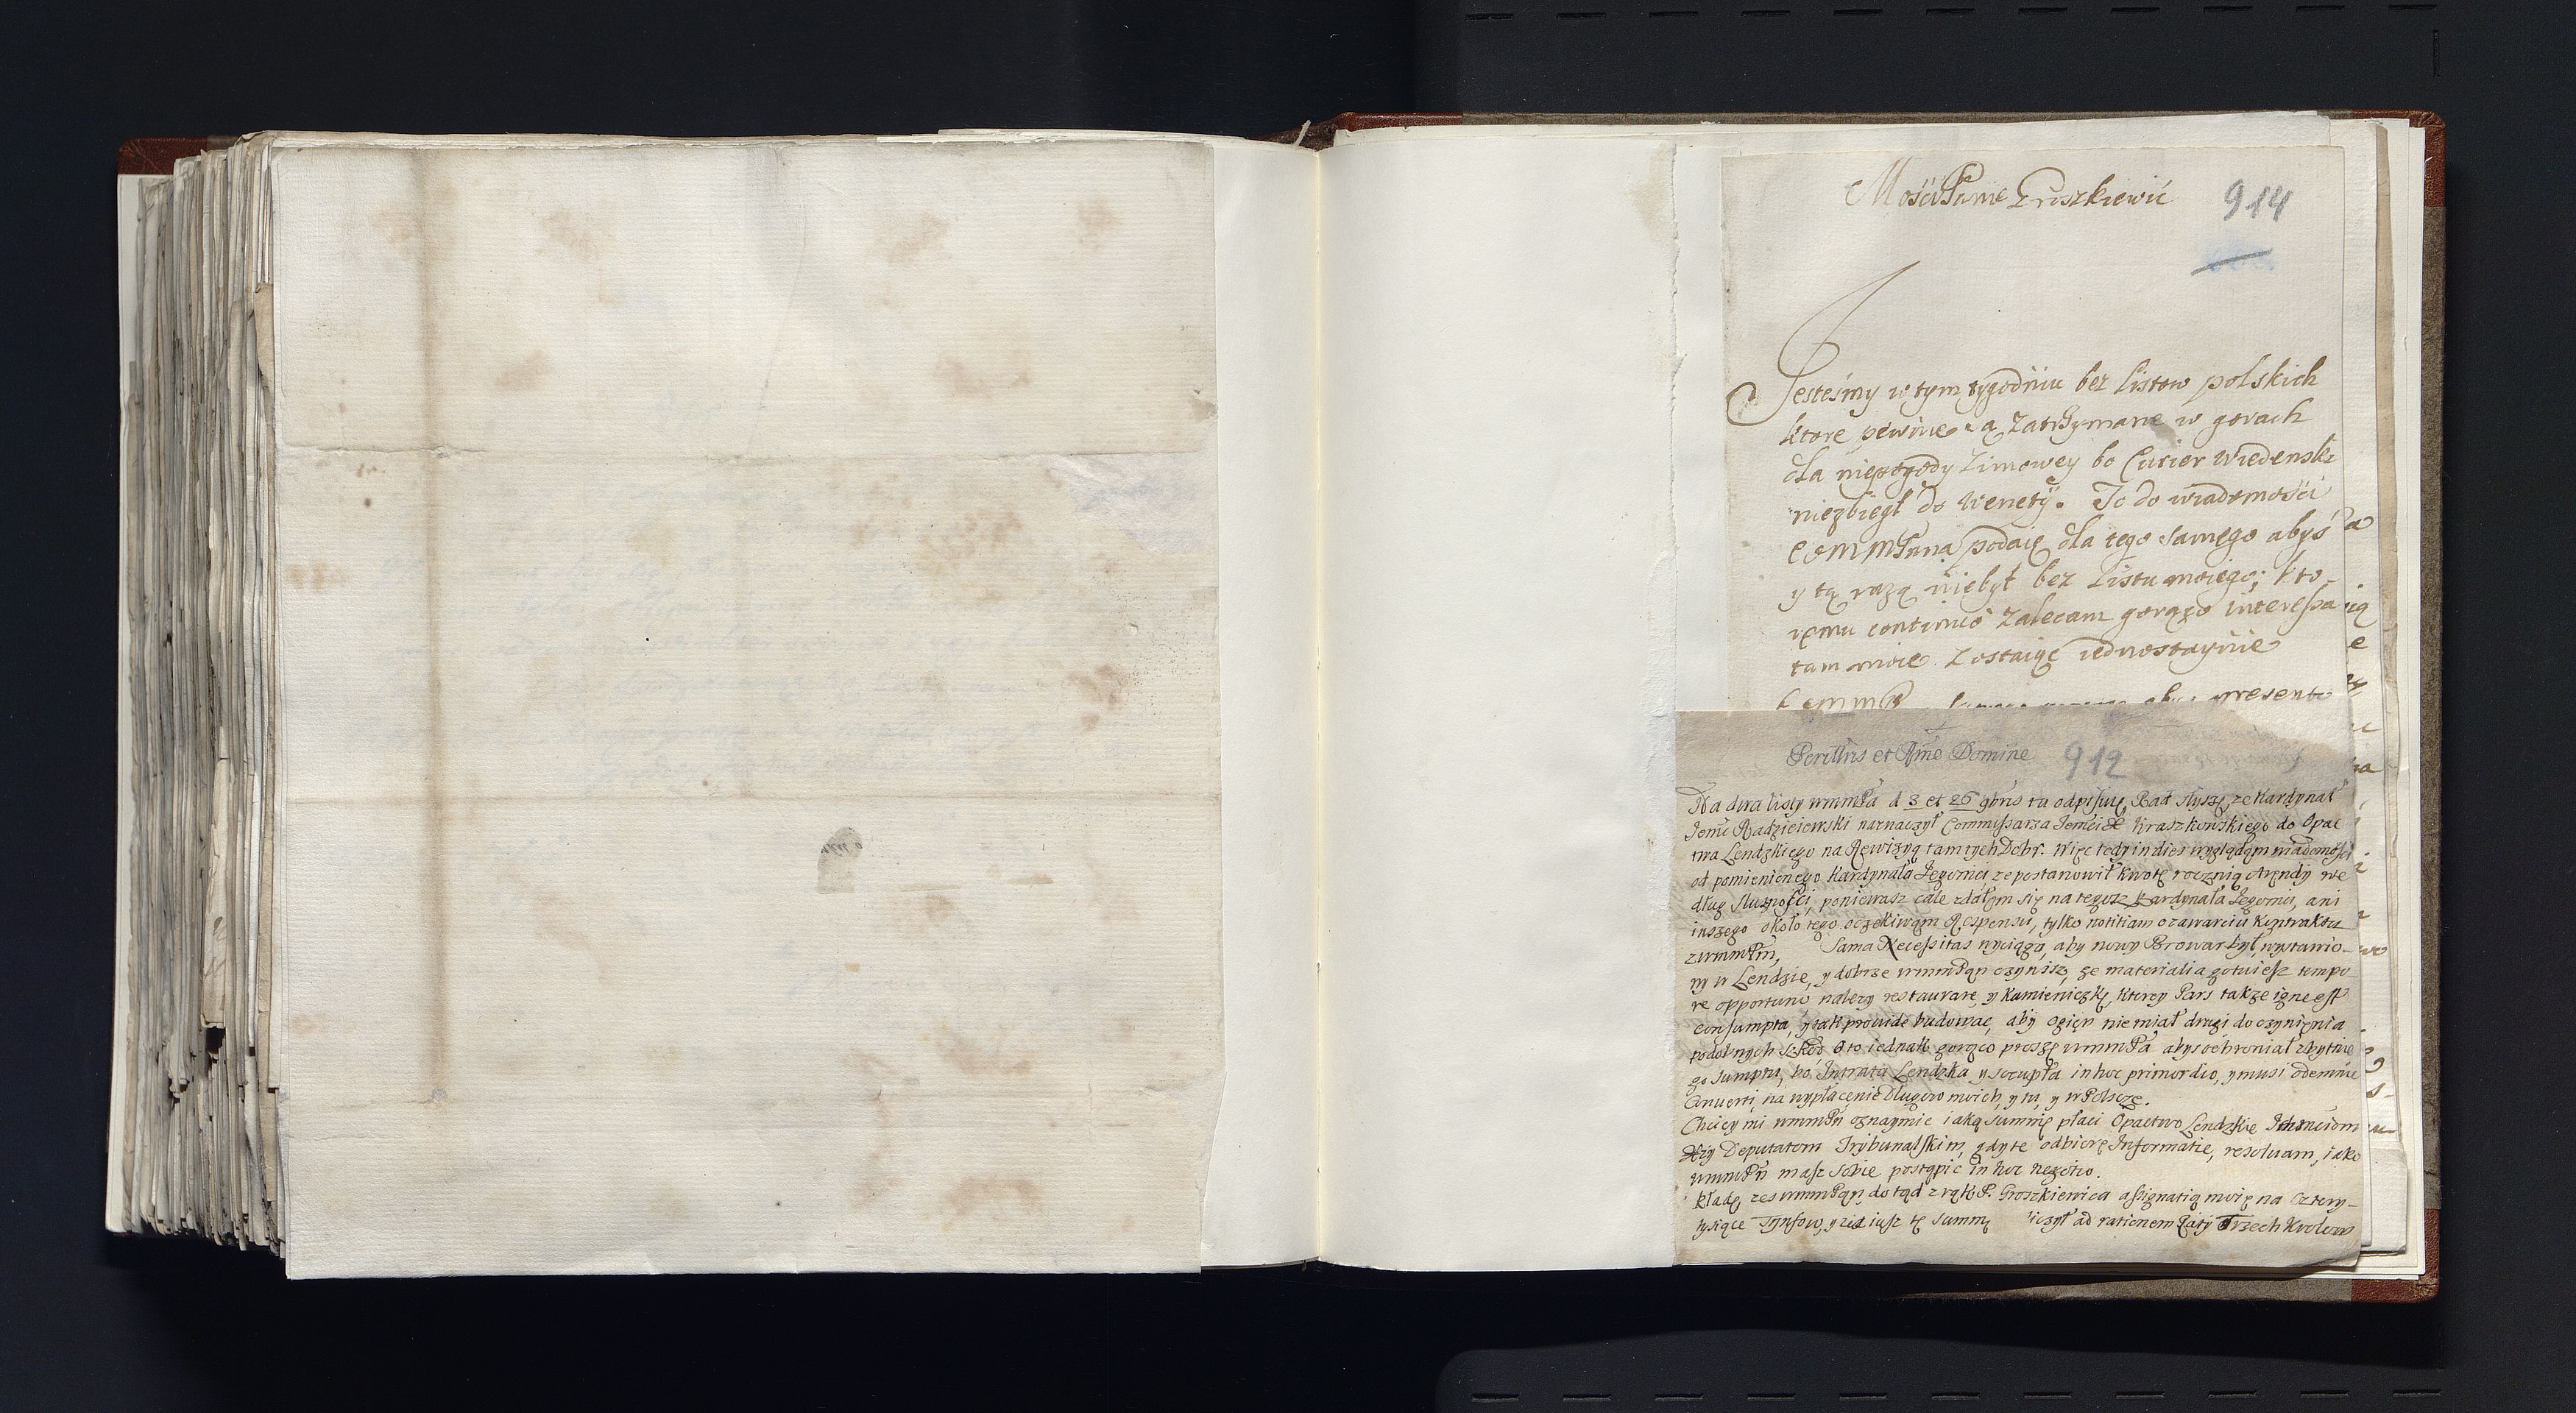 Mości Panie Groszkiewic 914
Jestesmy w tym tygodniu bez listow polskich
ktore pewnie są zatrzymane w gorach
dla niepogody zimowey bo Curier Wiedenski
niezbiegł do Wenetÿ. To do wiadomości
podaię dla tego samego abyś
y tą razą niebył bez listu moiego; kto-
remu continuò zalecam gorąco interessa
tam moie. Zostaię iednostaynie
Perillris et Rme Domine 912
Na dwa listy wmmPa d 3 et 26 9bris tu odpisuię, Rad słyszę, ze Kardynał
Jemć Radzieiowski naznaczył Commissarza Kraszkowskiego do Opac
twa Lendzkiego na Rewizyą tamtych Dobr. Więc tedy in dies wyglądam wiadomości
od pomienionego Kardynała Jegomci, ze postanowił kwotę roczną Arendy we
dług słusznosci, poniewasz cale zdałem się na tegosz Kardynała Jegomci, ani
inszego około tego oczekiwam Responsu, tylko notitiam o zawarciu Kontraktu
z wmmPm, Sama Necessitas wyciąga, aby nowy Browar był wystawio-
ny w Lendzie, y dobrze wmmPan czynisz, ze materialia gotuiesz tempo
re opportuno nalezy restaurare y Kamieniczkę, ktorey Pars takze igne est
consumpta, y tak provide budowac, aby ogien niemiał drogi do czynienia
podobnych szkod. Oto iednak gorąco proszę wmmPa abys ochroniał zbytnie
go sumptu, bo Intrata Lendzka y szczupła in hoc primordio, y musi odemnie
converti na wypłacenie Długow moich, y tu, y w Polszcze.
Chciey mi wmmPn oznaymic iaką summę płaci Opactwo Lendzkie Ichmciom
Deputatom Trybunalskim, gdy te odbiorę Informatie, resolvam, iako
wmmPn masz sobie postąpic in hoc negotio.
Kładę, zes wmmPan do tąd z rąk P. Groszkiewica assignatią moię na cztery-
tysiące Tynfow, y zes iusz tę summę ad rationem Raty Trzech Krolow